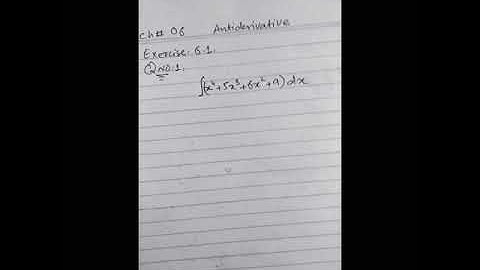 Ch# 06 Antiderivative
Exercise: 6.1.
Q NO.1.
∫(x⁴+5x³+6x²+9) dx